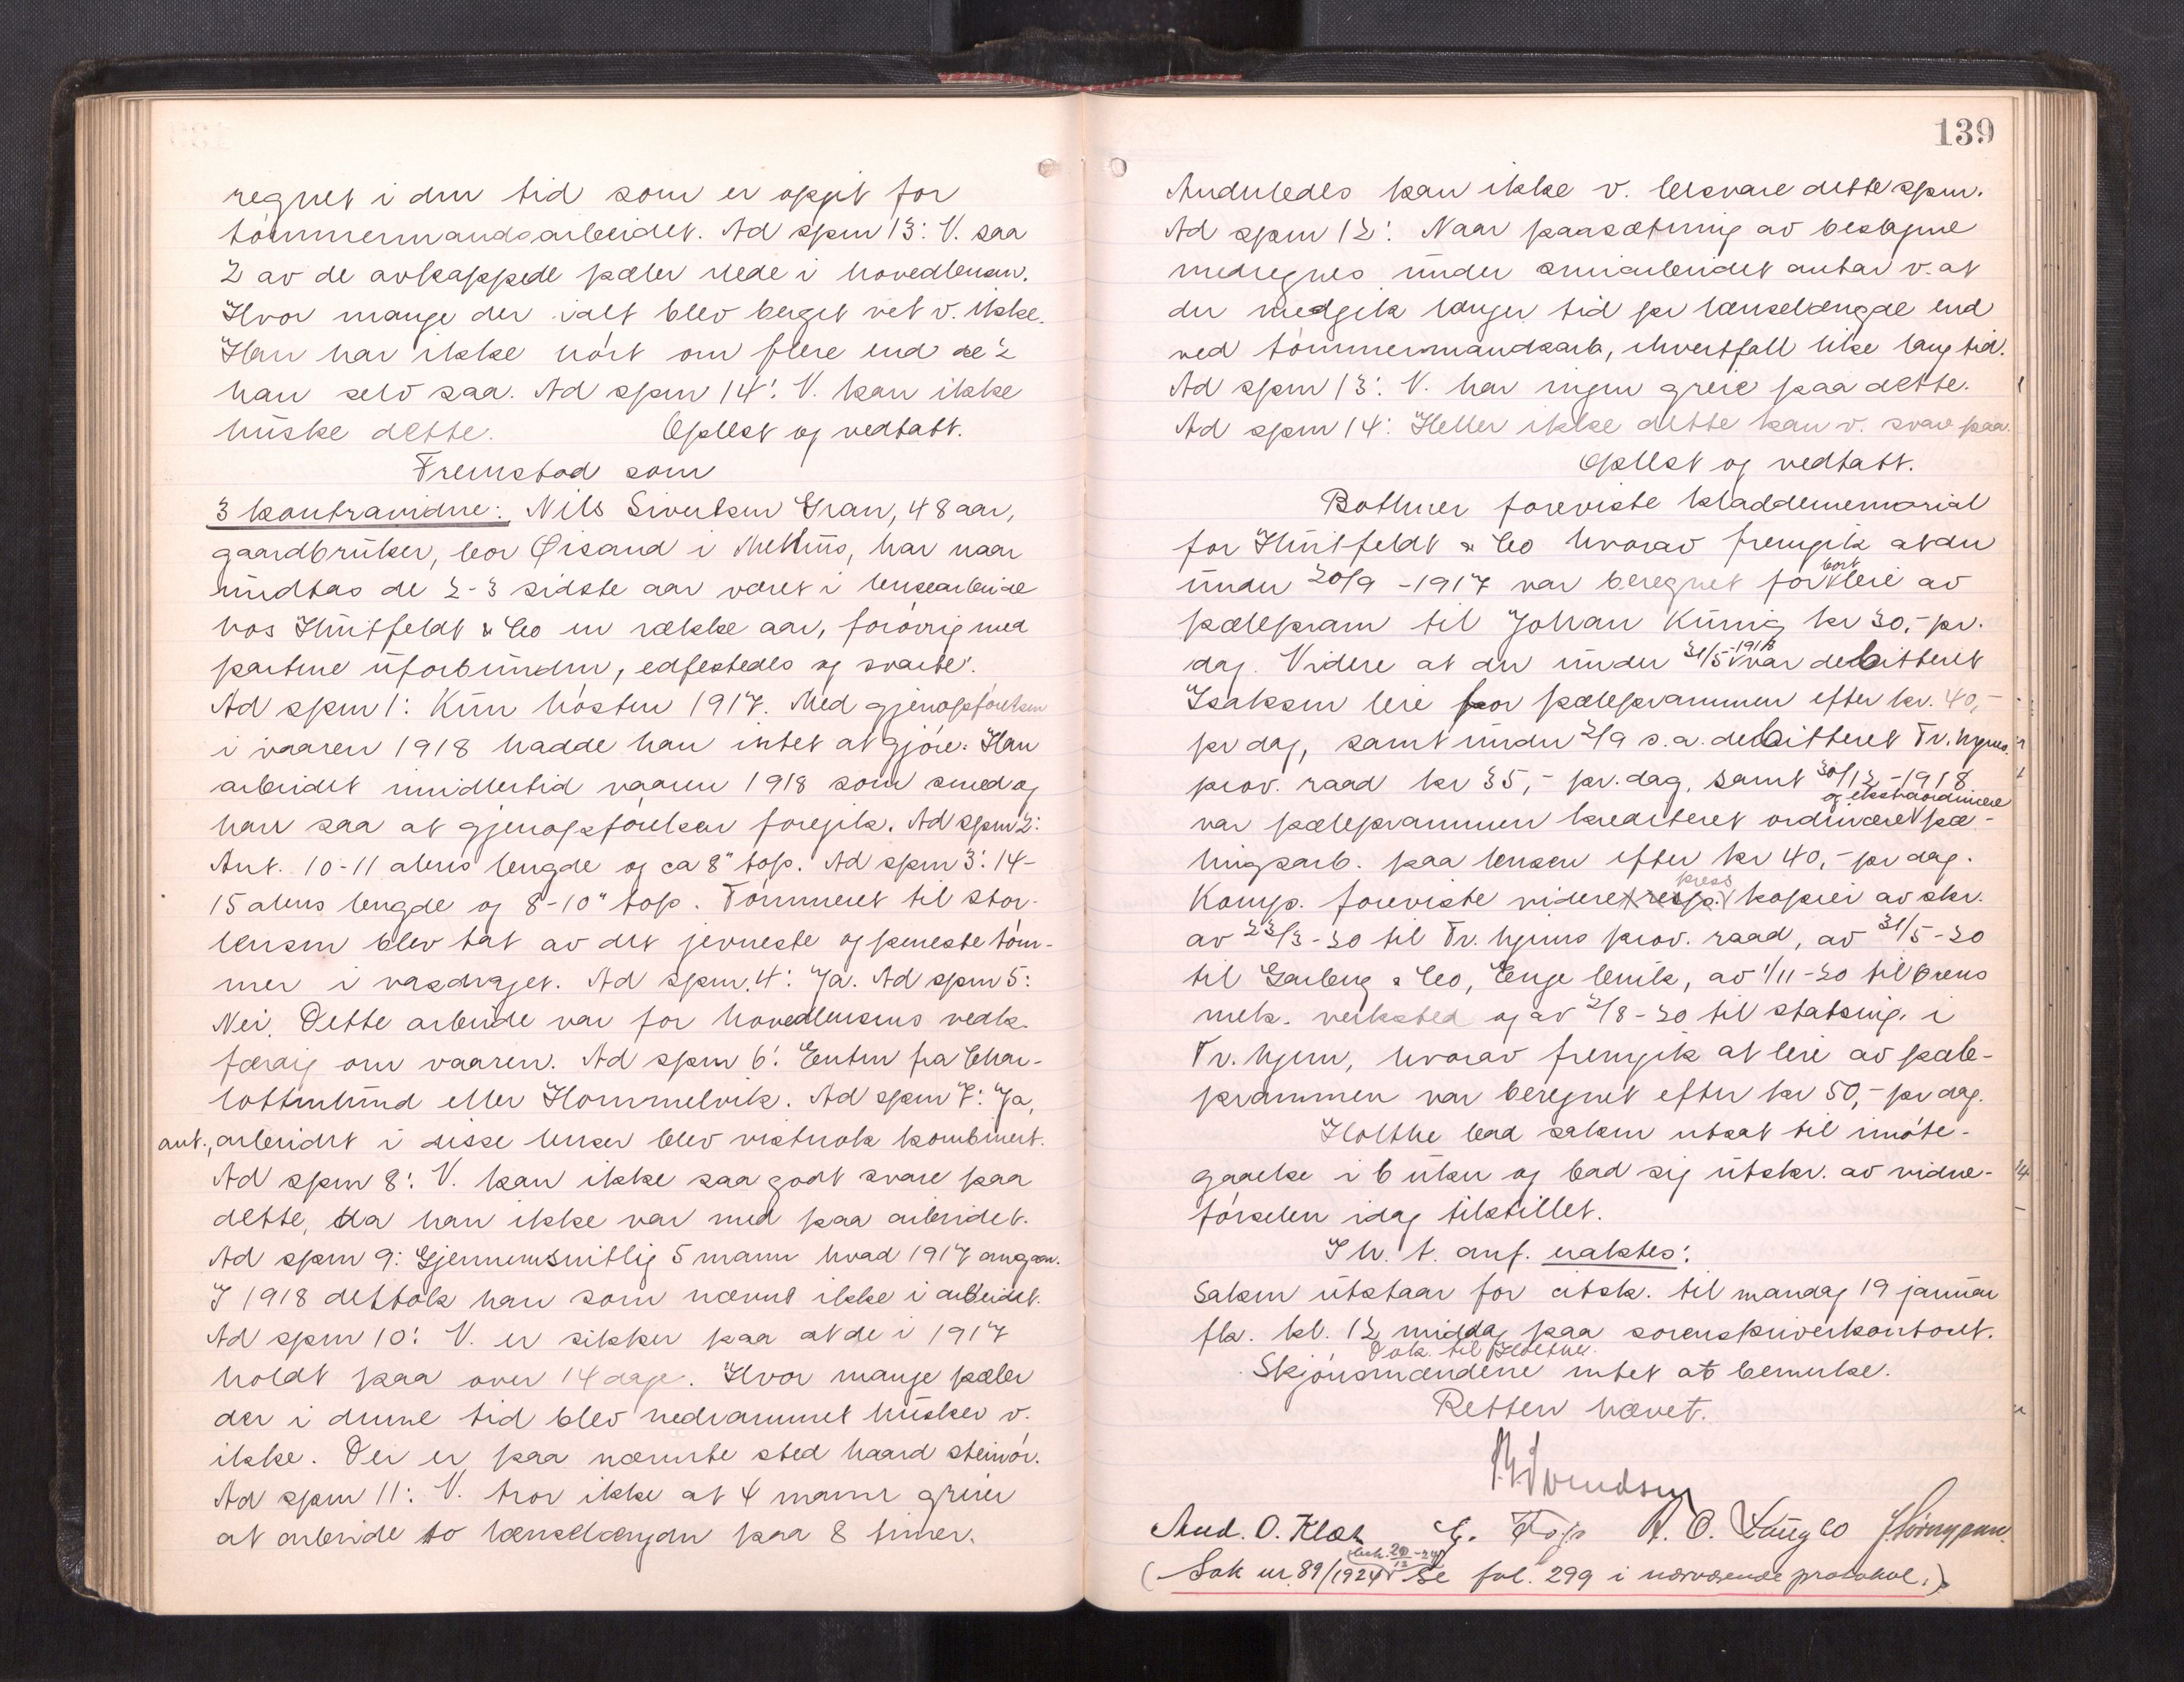 regnet i den tid som er opgit for
tömmermandsarbeidet. Ad spm 13: V. saa
2 av de avkappede pæler nede i hovedlensen.
Hvor mange der ialt blev berget vet v. ikke.
Han har ikke hört om flere end de 2
han selv saa. Ad spm 14: V. kan ikke
huske dette. Oplest og vedtatt.
Fremstod som
3 kontravidne: Nils Sivertsen Gran, 48 aar,
gaardbruker, bor Øisand i Melhus, har naar
undtas de 2-3 sidste aar været i lensearbeide
hos Huitfeldt & Co en række aar, forövrig med
partene uforbunden, edfestedes og svarte:
Ad spm 1: Kun hösten 1917. Med gjenopförelsen
i vaaren 1918 hadde han intet at gjöre. Han
arbeidet imidlertid vaaren 1918 som smed og
han saa at gjenopförelsen foregik. Ad spm 2:
Ant. 10-11 alens lengde og ca 8" top. Ad spm 3: 14-
15 alens lengde og 8-10" top. Tömmeret til stor-
lensen blev tat av det jevneste og peneste töm-
mer i vasdraget. Ad spm. 4: Ja. Ad spm 5:
Nei. Dette arbeide var for hovedlensens vedk.
færdig om vaaren. Ad spm 6: Enten fra Char-
lottenlund eller Hommelvik. Ad spm 7: Ja,
ant., arbeidet i disse lenser blev vistnok kombinert.
Ad spm 8: V. kan ikke saa godt svare paa
dette, da han ikke var med paa arbeidet.
Ad spm 9: Gjennemsnitlig 5 mann hvad 1917 angaar.
I 1918 deltok han som nævnt ikke i arbeidet.
Ad spm 10: V. er sikker paa at de i 1917
holdt paa over 14 dage. Hvor mange pæler
der i denne tid blev nedrammet husker v.
ikke. Der er paa nævnte sted haard steinör.
Ad spm 11: V. tror ikke at 4 mann greier
at arbeide to lænselængder paa 8 timer.
139
Anderledes kan ikke v. besvare dette spm.
Ad spm 12: Naar paasætning av beslagene
medregnes under smiarbeidet antar v. at
der medgik længer tid pr lænselængde end
ved tömmermandsarb, ihvertfall like lang tid.
Ad spm 13: V. har ingen greie paa dette.
Ad spm 14: Heller ikke dette kan v. svare paa.
Oplest og vedtatt.
Bothner foreviste kladdememorial
for Huitfeldt & Co hvorav fremgik at der
under 20/9-1917 var beregnet for bortleie av
pælepram til Johan Kunig kr 30,- pr.
dag. Videre at der under 31/5-1918 var debitteret
Isaksen leie for pæleprammen efter kr. 40,-
pr dag, samt under 2/9 s.a. debitteret Tr. hjems
prov. raad kr 35,- pr. dag, samt 30/12-1918
var pæleprammen krediteret ordinære og ekstraordinære pæ-
lingsarb. paa lensen efter kr 40,- pr dag.
Komp. foreviste videre press kopier av skr.
av 23/3-20 til Tr. hjems prov. raad, av 31/5-20
til Garberg & Co, Enge bruk, av 1/11-20 til Ørens
mek. verksted og av 2/8-20 til statsing. i
Tr. hjem, hvorav fremgik at leie av pæle-
prammen var beregnet efter kr 50,- pr dag.
Holthe bad saken utsat til imöte-
gaaelse i 6 uker og bad sig utskr. av vidne-
förselen idag tilstillet.
I h. t. anf. eraktes:
Saken utstaar for citsk. til mandag 19 januar
fk. kl. 12 middag paa sorenskriverkontoret.
Dok. til Holthe.
Skjönsmændene intet at bemerke.
Retten hævet.
And. O. Klæt E. Fogs A. O. Langlo
(Sak nr. 89/1924 besk. 20/12-24 Se fol. 299 i nærværende protokol.)